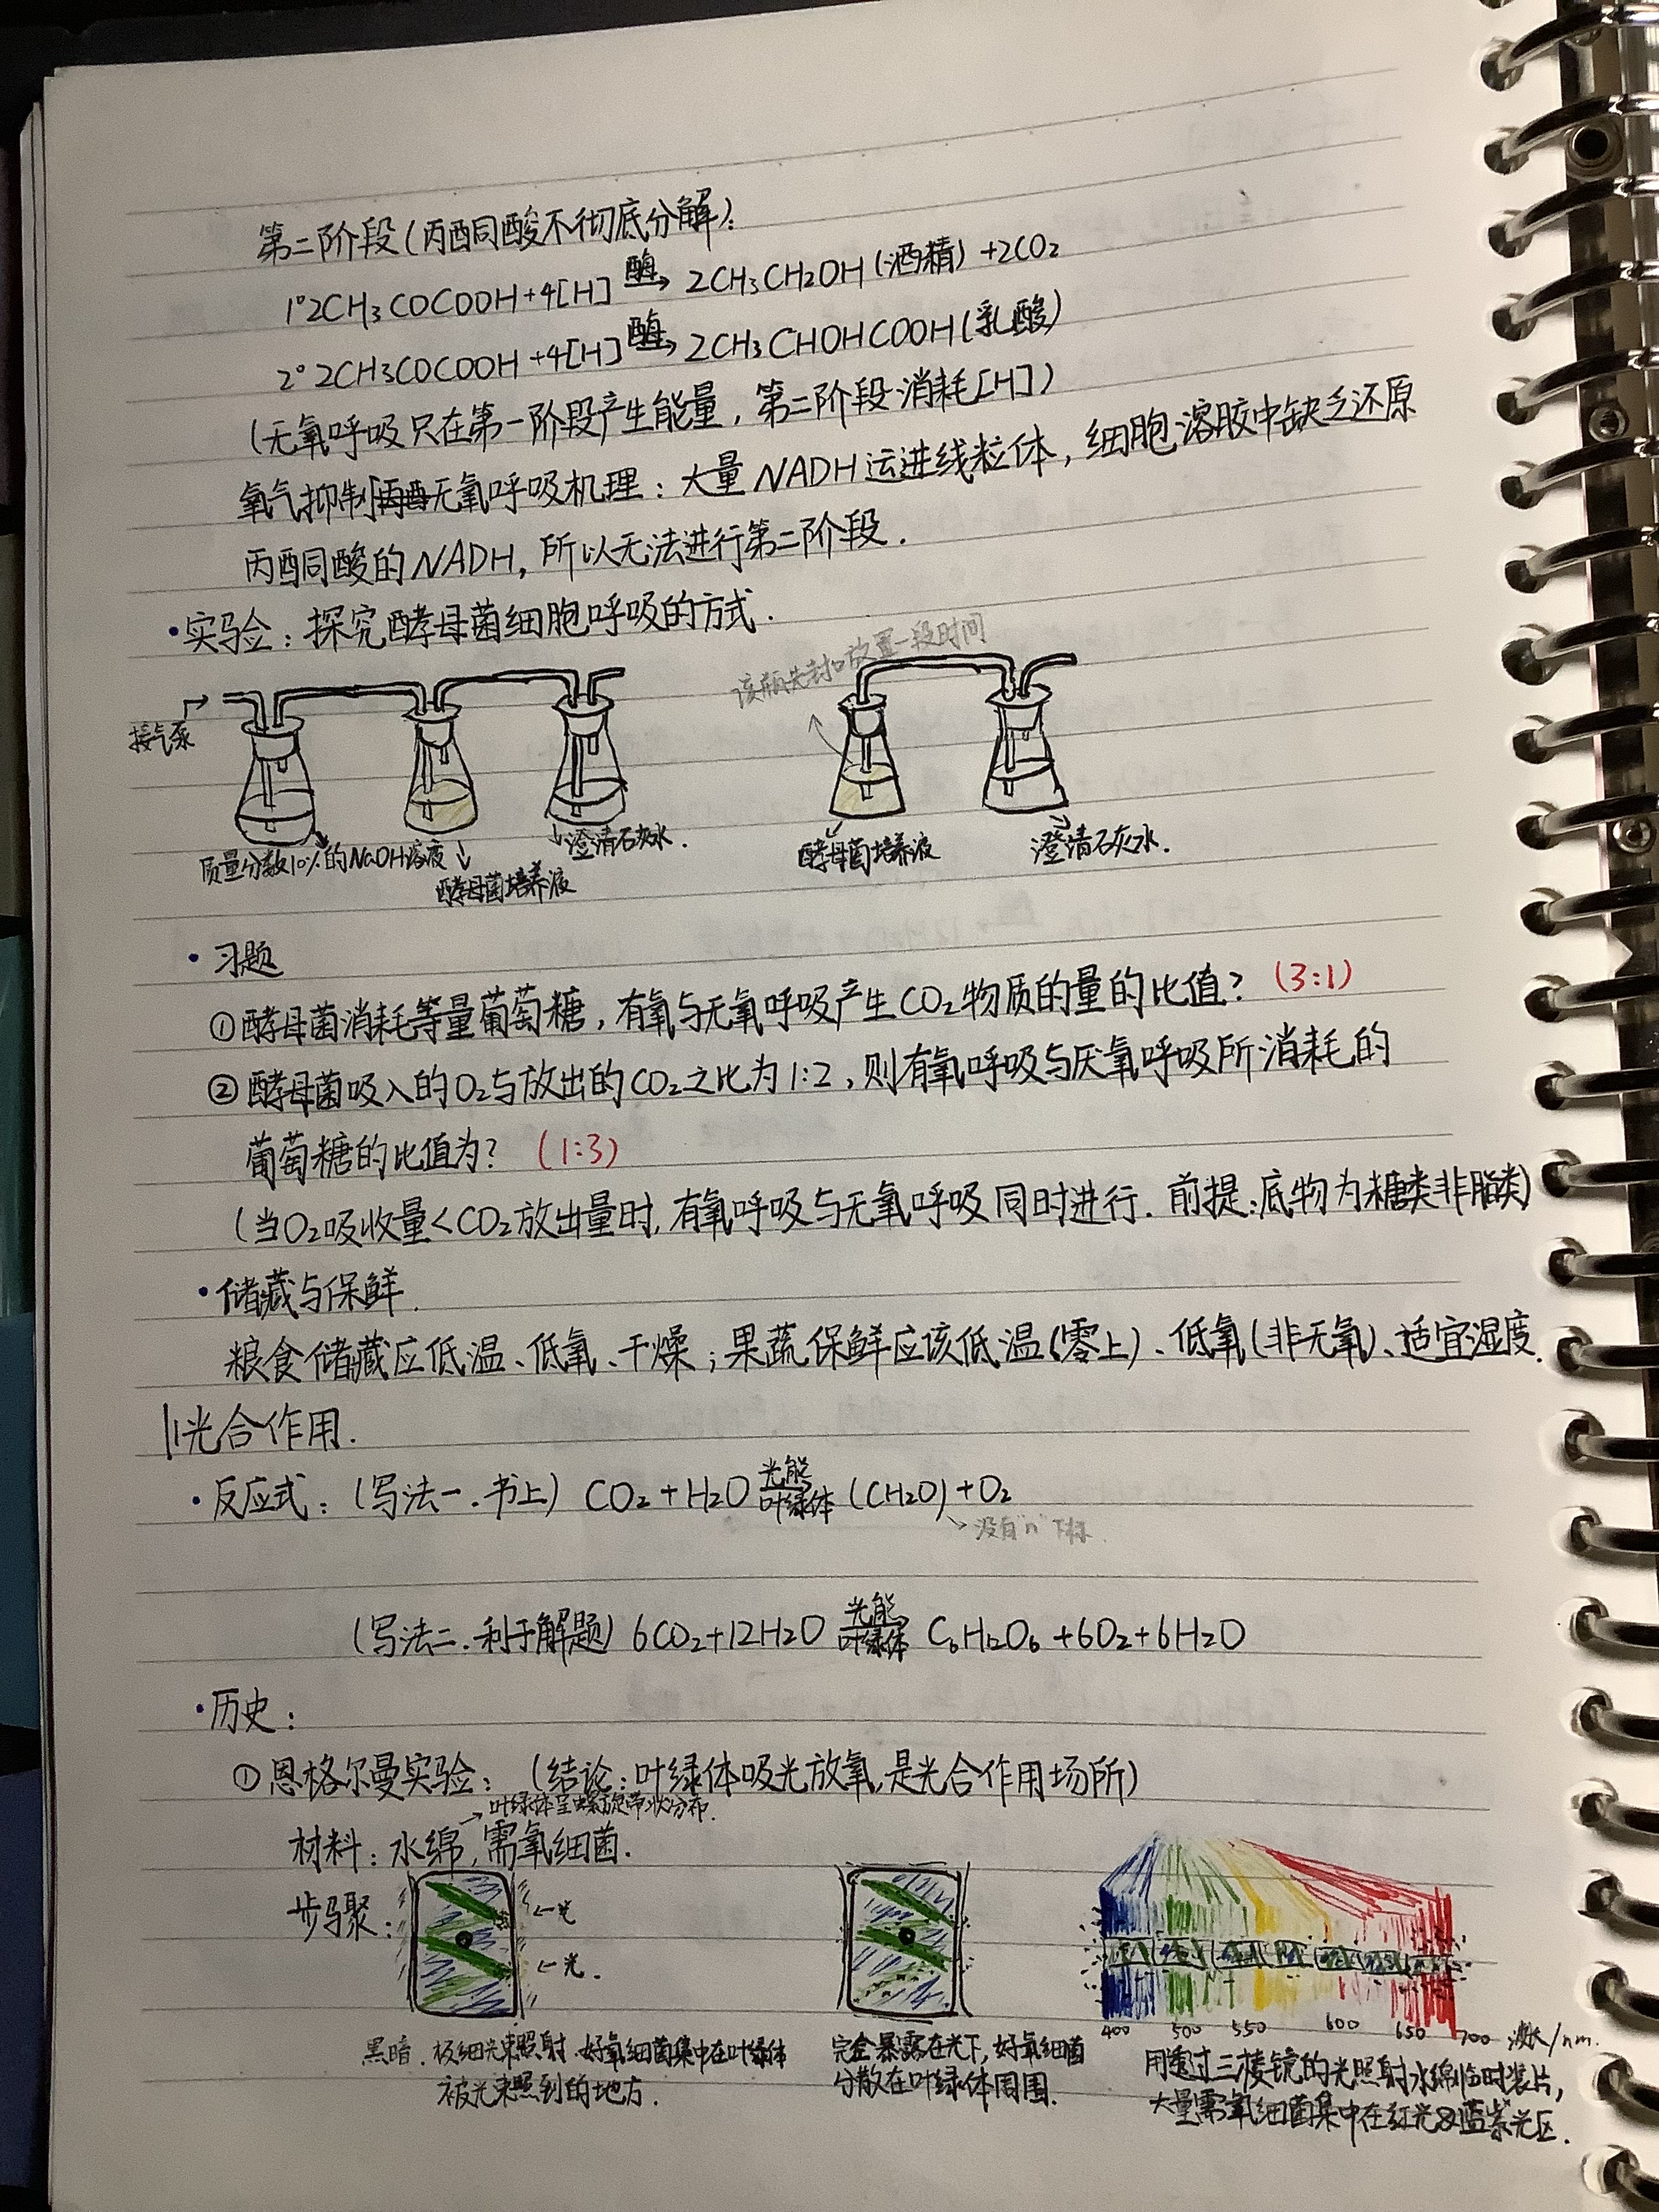 第二阶段(丙酮酸不彻底分解):
1° 2CH₃COCOOH+4[H] 酶→ 2CH₃CH₂OH(酒精)+2CO₂
2° 2CH₃COCOOH+4[H] 酶→ 2CH₃CHOHCOOH(乳酸)
(无氧呼吸只在第一阶段产生能量,第二阶段消耗[H])
氧气抑制无氧呼吸机理:大量NADH运进线粒体,细胞溶胶中缺乏还原
丙酮酸的NADH,所以无法进行第二阶段.
·实验:探究酵母菌细胞呼吸的方式.
该瓶先封口放置一段时间
接气泵
质量分数10%的NaOH溶液
酵母菌培养液
澄清石灰水.
酵母菌培养液
澄清石灰水.
·习题
①酵母菌消耗等量葡萄糖,有氧与无氧呼吸产生CO₂物质的量的比值?(3:1)
②酵母菌吸入的O₂与放出的CO₂之比为1:2,则有氧呼吸与厌氧呼吸所消耗的
葡萄糖的比值为?(1:3)
(当O₂吸收量<CO₂放出量时,有氧呼吸与无氧呼吸同时进行.前提:底物为糖类非脂类)
·储藏与保鲜.
粮食储藏应低温、低氧、干燥;果蔬保鲜应该低温(零上)、低氧(非无氧)、适宜湿度.
光合作用.
·反应式:(写法一.书上) CO₂+H₂O 光能→叶绿体 (CH₂O)+O₂
没有"n"下标.
(写法二.利于解题) 6CO₂+12H₂O 光能→叶绿体 C₆H₁₂O₆+6O₂+6H₂O
·历史:
①恩格尔曼实验:(结论:叶绿体吸光放氧,是光合作用场所)
叶绿体呈螺旋带状分布.
材料:水绵,需氧细菌.
步骤:
←光
←光.
400 500 550 600 650 700 波长/nm.
黑暗.极细光束照射.好氧细菌集中在叶绿体
被光束照到的地方.
完全暴露在光下,好氧细菌
分散在叶绿体周围.
用透过三棱镜的光照射水绵临时装片,
大量需氧细菌集中在红光及蓝紫光区.